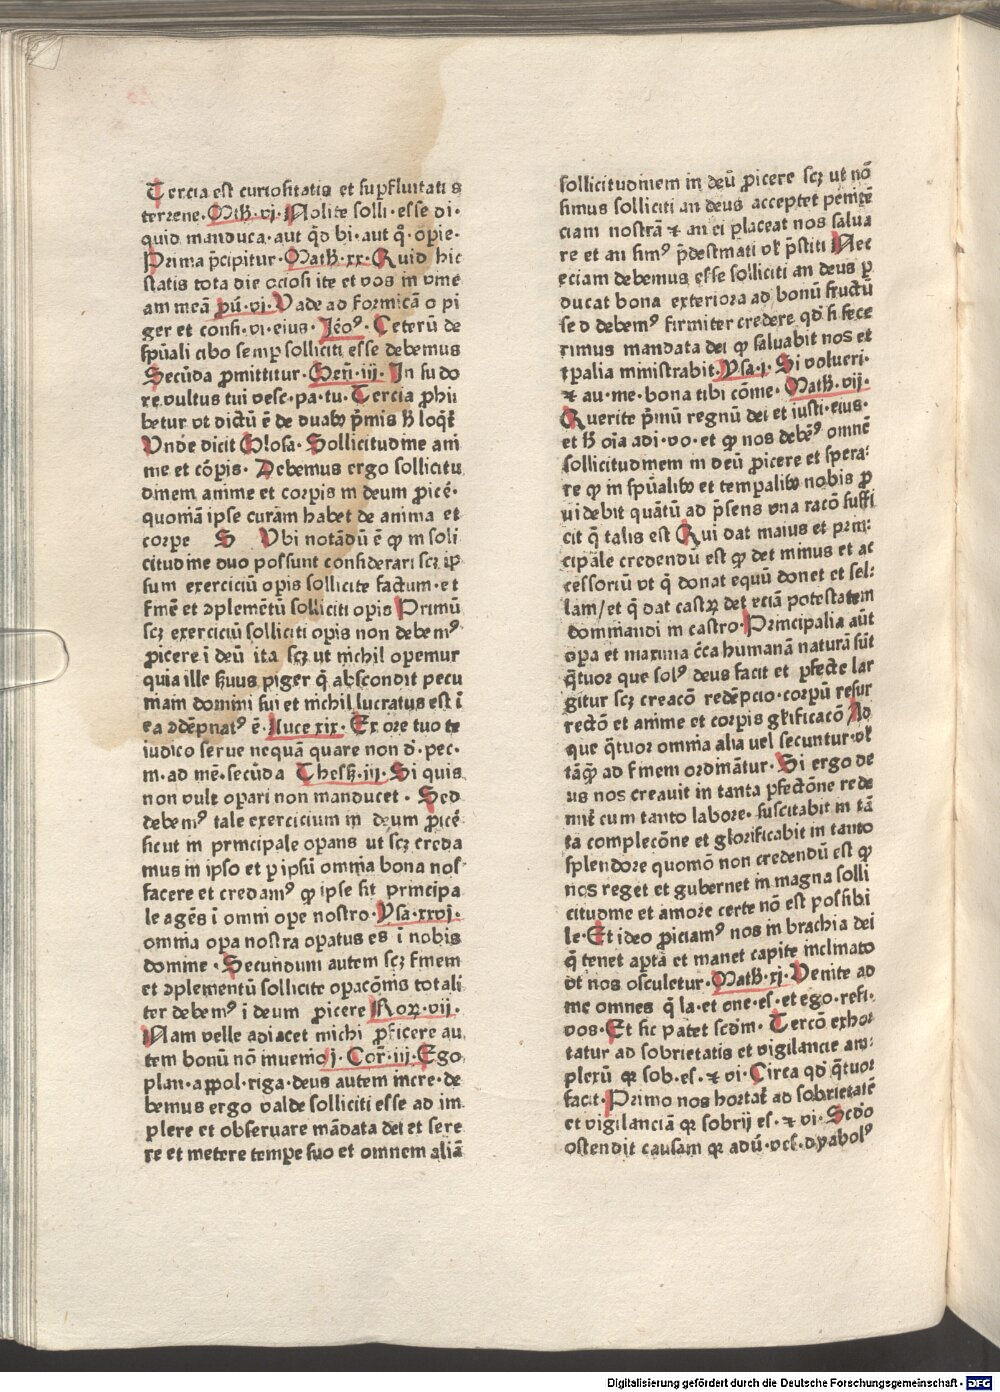 Tercia est curiositatis et suꝑfluitatis
terrene. Mth̄. vj. Nolite solli. esse di.
quid manduca. aut qd̄ bi. aut q̄. oꝑie.
Prima p̄cipitur. Math̄. xx. Quid hic
statis tota die ociosi ite et vos in vine
am meā pu᷑. vi. Vade ad formicā o pi
ger et consi. vi. eius. Jeō⁹. Ceterū de
spūali cibo semꝑ solliciti esse debemus
Secūda ꝓmittitur. Geñ. iii. In sudo
re vultus tui vesc. pa. tu. Tercia ꝓhi
betur vt dictū ē de duab⁹ p̄mis h̄ loqt᷑
Vnde dicit Glosa. Sollicitudine ani
me et cōꝑis. Debemus ergo sollicitu
dinem anime et corꝑis in deum ꝓicē.
quoniā ipse curam habet de anima et
corpe S Vbi notādū ē ꝙ in soli
citudine duo possunt considerari scꝫ ip
sum exerciciū oꝑis sollicite factum. et
finē et ꝯplementū solliciti oꝑis Primū
scꝫ exerciciū solliciti oꝑis non debem⁹
ꝓicere ī deū ita scꝫ ut nichil opemur
quia ille ẜuus piger q̄ abscondit pecu
niam domini sui et nichil lucratus est ī
ea ꝯdēpnat⁹ ē. Luce xix. Ex ore tuo te
iudico serue nequā quare non d̄. pec.
m. ad mē. secūda Thess̄. iij. Si quis
non vult oꝑari non manducet. Sed
debem⁹ tale exercicium in deum ꝓicē
sicut in principale oꝑans ut scꝫ creda
mus in ipso et ꝑ ipsū omnia bona nos
facere et credam⁹ ꝙ ipse sit principa
le agēs ī omni ope nostro. Ysa. xxvj.
omnia oꝑa nostra oꝑatus es ī nobis
domine. Secundum autem scꝫ finem
et ꝯplementū sollicite oꝑacōnis totali
ter debem⁹ ī deum ꝓicere Roꝝ. vii.
Nam velle adiacet michi ꝑficere au
tem bonū nō inuenio j. Cor᷑. iij. Ego
plan. appol. riga. deus autem incre. de
bemus ergo valde solliciti esse ad im
plere et obseruare mādata dei et sere
re et metere tempe suo et omnem aliā
sollicitudinem in deū ꝓicere scꝫ ut nō
simus solliciti an deus acceptet penitē
ciam nostrā ⁊ an ei placeat nos salua
re et an sim⁹ p̄destinati vl̄ p̄sciti Nec
eciam debemus esse solliciti an deus ꝑ
ducat bona exteriora ad bonū fructū
sed debem⁹ firmiter credere qd̄ si fece
rimus mandata dei ꝙ saluabit nos et
tꝑalia ministrabit. Ysa. j. Si volueri.
⁊ au. me. bona tibi cōme. Math̄. vij.
Querite p̄mū regnū dei et iusti. eius.
et h̄ oīa adi. vo. et ꝙ nos debē⁹ omnē
sollicitudinem in deū ꝓicere et spera
re ꝙ in spūalib⁹ et temꝑalib⁹ nobis ꝓ
uidebit quātū ad p̄sens vna racō suffi
cit q̄ talis est Qui dat maius et prin
cipale credendū est ꝙ det minus et ac
cessoriū vt q̄ donat equū donet et sel
lam/ et q̄ dat castꝝ det eciā potestatem
dominandi in castro. Principalia aūt
oꝑa et maxima c̄ca humanā naturā sūt
q̄tuor que sol⁹ deus facit et ꝑfecte lar
gitur scꝫ creacō redēpcio. corpū resur
rectō et anime et corꝑis gl̄ificacō Ad
que q̄tuor omnia alia uel secuntur. vl̄
tāq̄ ad finem ordināntur. Si ergo de
us nos creauit in tanta ꝑfectōne rede
mit cum tanto labore. suscitabit in tā
ta complecōne et glorificabit in tanto
splendore quomō non credendū est ꝙ
nos reget et gubernet in magna solli
citudine et amore certe nō est possibi
le. Et ideo ꝓiciam⁹ nos in brachia dei
q̄ tenet aꝑta et manet capite inclinato
vt nos osculetur. Math̄. xj. Venite ad
me omnes q̄ la. et one. es. et ego. refi.
vos. Et sic patet scdm̄. Tercō exhor
tatur ad sobrietatis et vigilancie am
plexū qr sob. es. ⁊ vi. Circa qd̄ q̄tuor
facit. Primo nos hortat᷑ ad sobrietatē
et vigilanciā qr sobrij es. ⁊ vi. Scd̄o
ostendit causam qr adū. ves. dyabol⁹
Digitalisierung gefördert durch die Deutsche Forschungsgemeinschaft - DFG